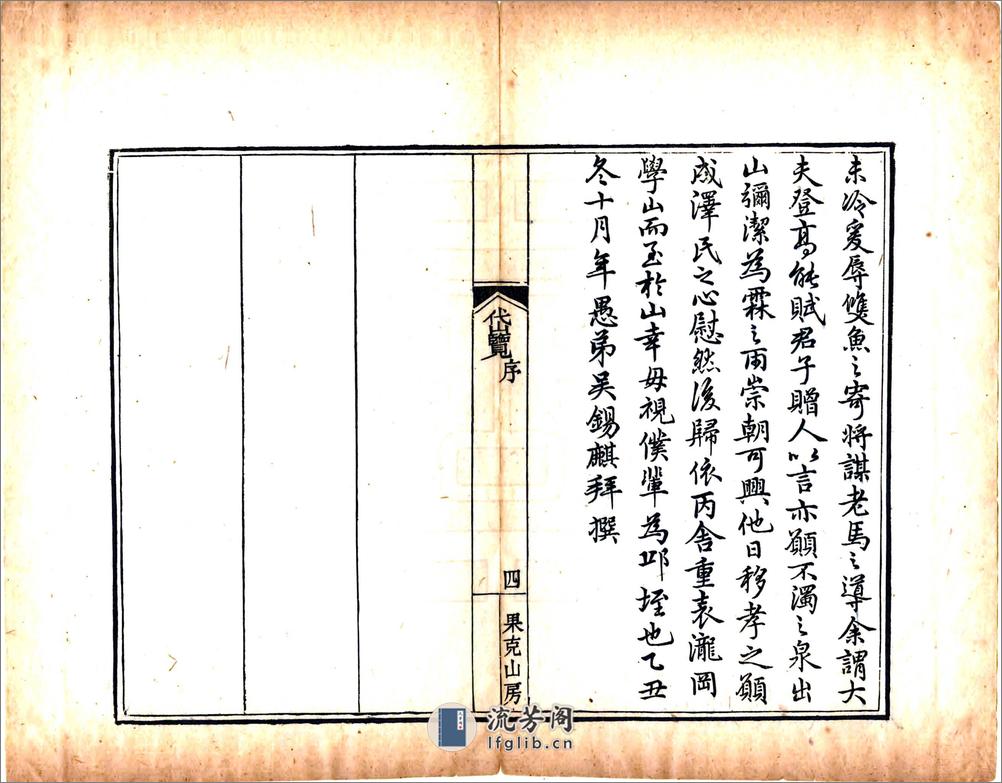 未冷爰辱雙魚之寄將謀老馬之導余謂大
夫登高能賦君子贈人以言亦願不濁之泉出
山彌潔為霖之雨崇朝可興他日移孝之願
成澤民之心慰然後歸依丙舍重表瀧岡
學山而至於山幸毋視僕輩為邱垤也乙丑
冬十月年愚弟吴錫麒拜撰
岱覽
序
四
果克山房
流芳阁
lfglib.cn